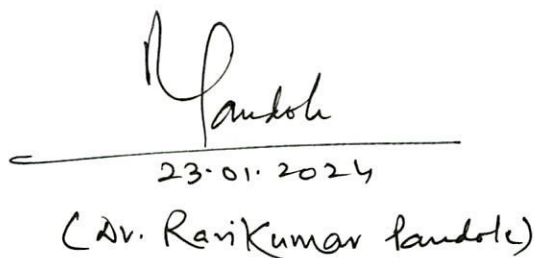 RPandole
23.01.2024
(Dr. RaviKumar Pandole)